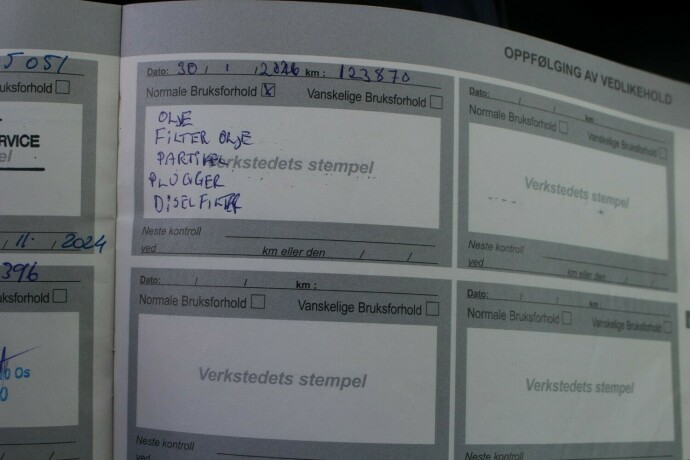 OPPFØLGING AV VEDLIKEHOLD
5051
ksforhold
RVICE
11. 2024
396
ksforhold
0 Os
0
Dato: 30 / 1 / 2026 km: 123870
Normale Bruksforhold X Vanskelige Bruksforhold
Verkstedets stempel
OLJE
FILTER OLJE
PARTIKEL
PLUGGER
DISELFILTER
Neste kontroll
ved km eller den / /
Dato: / / km:
Normale Bruksforhold Vanskelige Bruksforhold
Verkstedets stempel
Neste kontroll
ved km eller den / /
Dato: / / km :
Normale Bruksforhold Vanskelige Bruksforhold
Verkstedets stempel
Neste kontroll
ved
Dato: / / km :
Normale Bruksforhold Vanskelige Bruksforhold
Verkstedets stempel
Neste kontroll